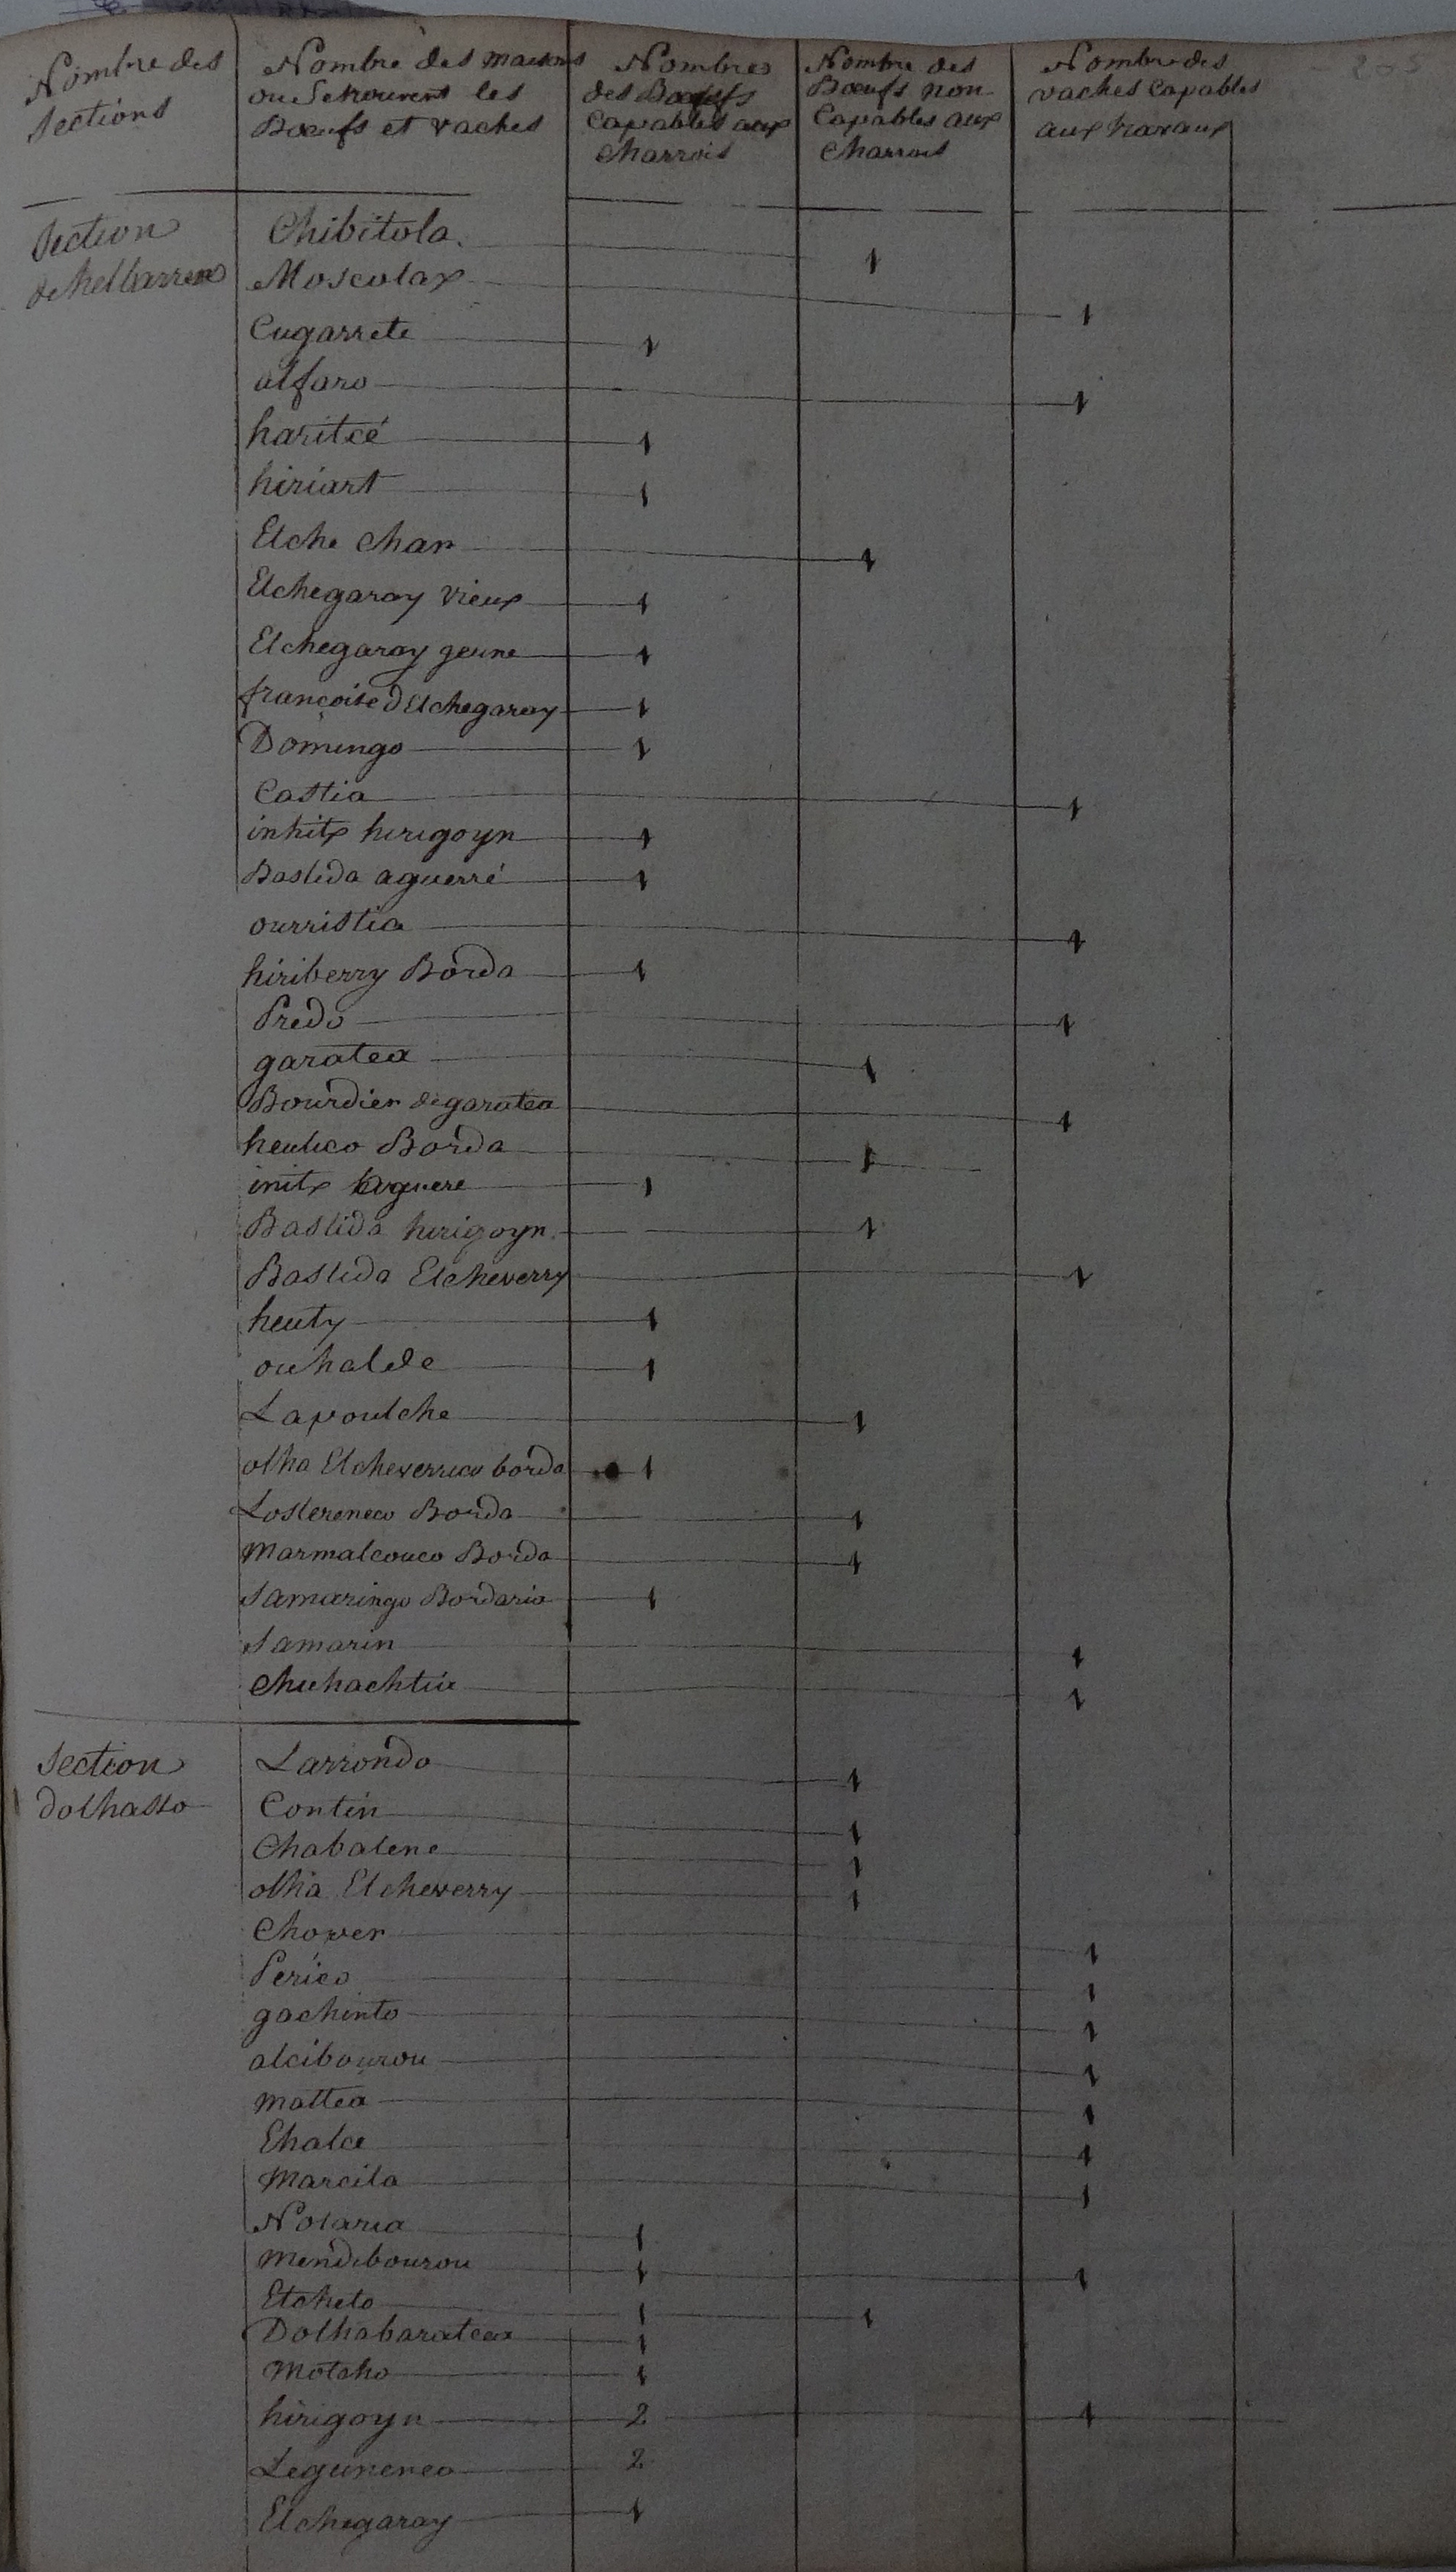 Nombre des Sections | Nombre des maisons ou Se trouvent les Bœufs et vaches | Nombres des Bœufs Capables aux Charrois | Nombre des Bœufs non Capables aux Charrois | Nombre des vaches Capables aux travaux | 205
Section | Chibitola | | 1 |
de helbarren | Moscolax | | | 1
Cugarrete | 1
alfaro | | | 1
haritcé | 1
hiriart | 1
Etche Char | | 1
Etchegaray vieux | 1
Etchegaray geune | 1
françoise d Etchegaray | 1
Domingo | 1
Castia | | | 1
inhitx hirigoyn | 1
Bastida aguerré | 1
ourristia | | | 1
hiriberry Borda | 1
Predo | | | 1
garatea | | 1
Bourdier de garatea | | | 1
heutico Borda | | 1
initx aguere | 1
Bastida hirigoyn | | 1
Bastida Etcheverry | | | 1
heuty | 1
ouhalde | 1
Lapoutche | | 1
olha Etcheverrico borda | 1
Lostereneco Borda | | 1
Marmalcouco Borda | | 1
Samaringo Bordaria | 1
Samarin | | | 1
Chuhachtiu | | | 1
Section | Larrondo | | 1
dolhasso | Contin | | 1
Chabatene | | 1
olha Etcheverry | | 1
Chover | | | 1
Perico | | | 1
gachinto | | | 1
alcibourou | | | 1
mattea | | | 1
Ehalce | | | 1
Marcila | | | 1
Notaria | 1
mendibourou | 1 | | 1
Etcheto | 1 | 1
Dolhabaratea | 1
Motcho | 1
hirigoyn | 2 | | 1
Legunenea | 2
Etchegaray | 1